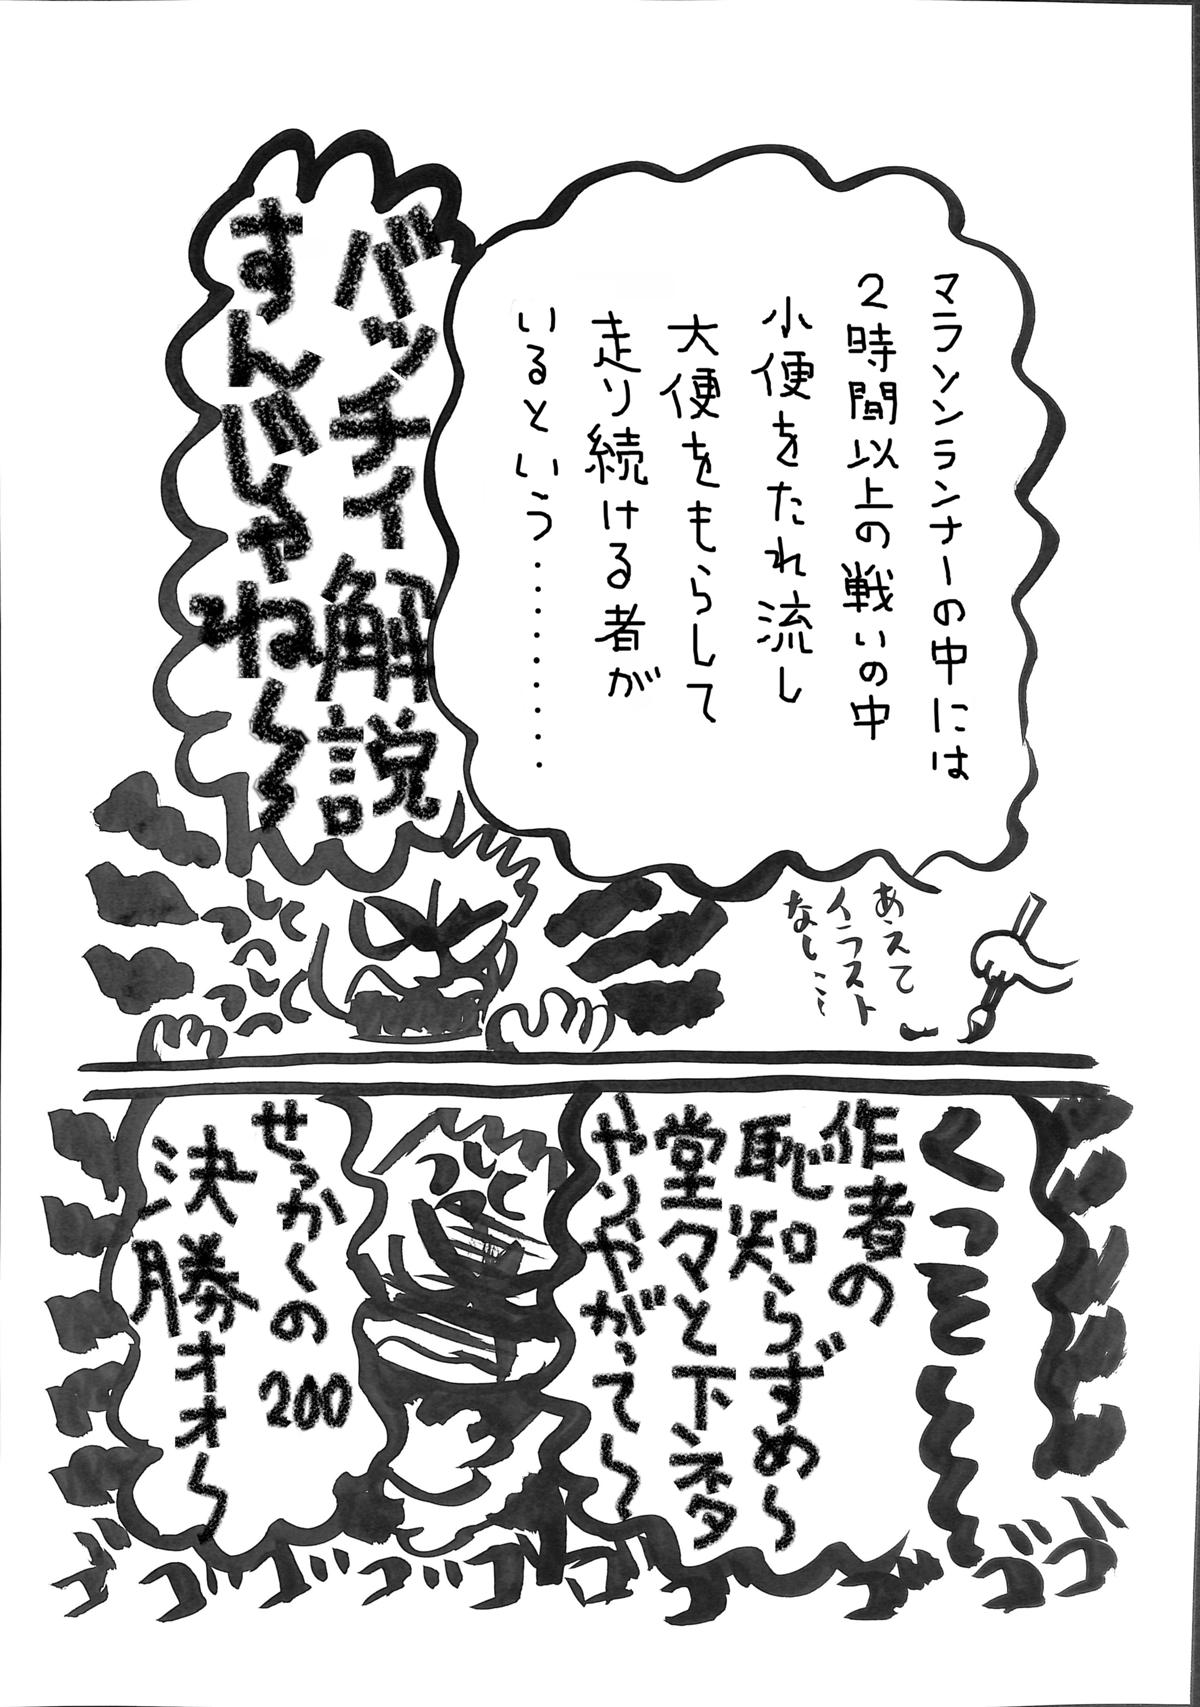 マラソンランナーの中には
2時間以上の戦いの中
小便をたれ流し
大便をもらして
走り続ける者が
いるという・・・・・・・・・
バッチィ解説
すんじゃね〜〜
あえて
イラスト
なし・・・
くっそ〜〜
作者の
恥知らずめ〜〜
堂々と下ネタ
やりやがって〜〜
せっかくの200
決勝オオ〜〜
ゴゴゴゴゴゴゴゴゴ